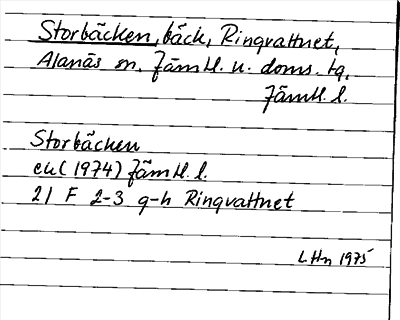 Storbäcken, bäck, Ringvattnet,
Alanäs sn. Jämtl. n. doms. tg.
Jämtl. l.
Storbäcken
ek (1974) Jämtl. l.
21 F 2-3 g-h Ringvattnet
LHn 1975